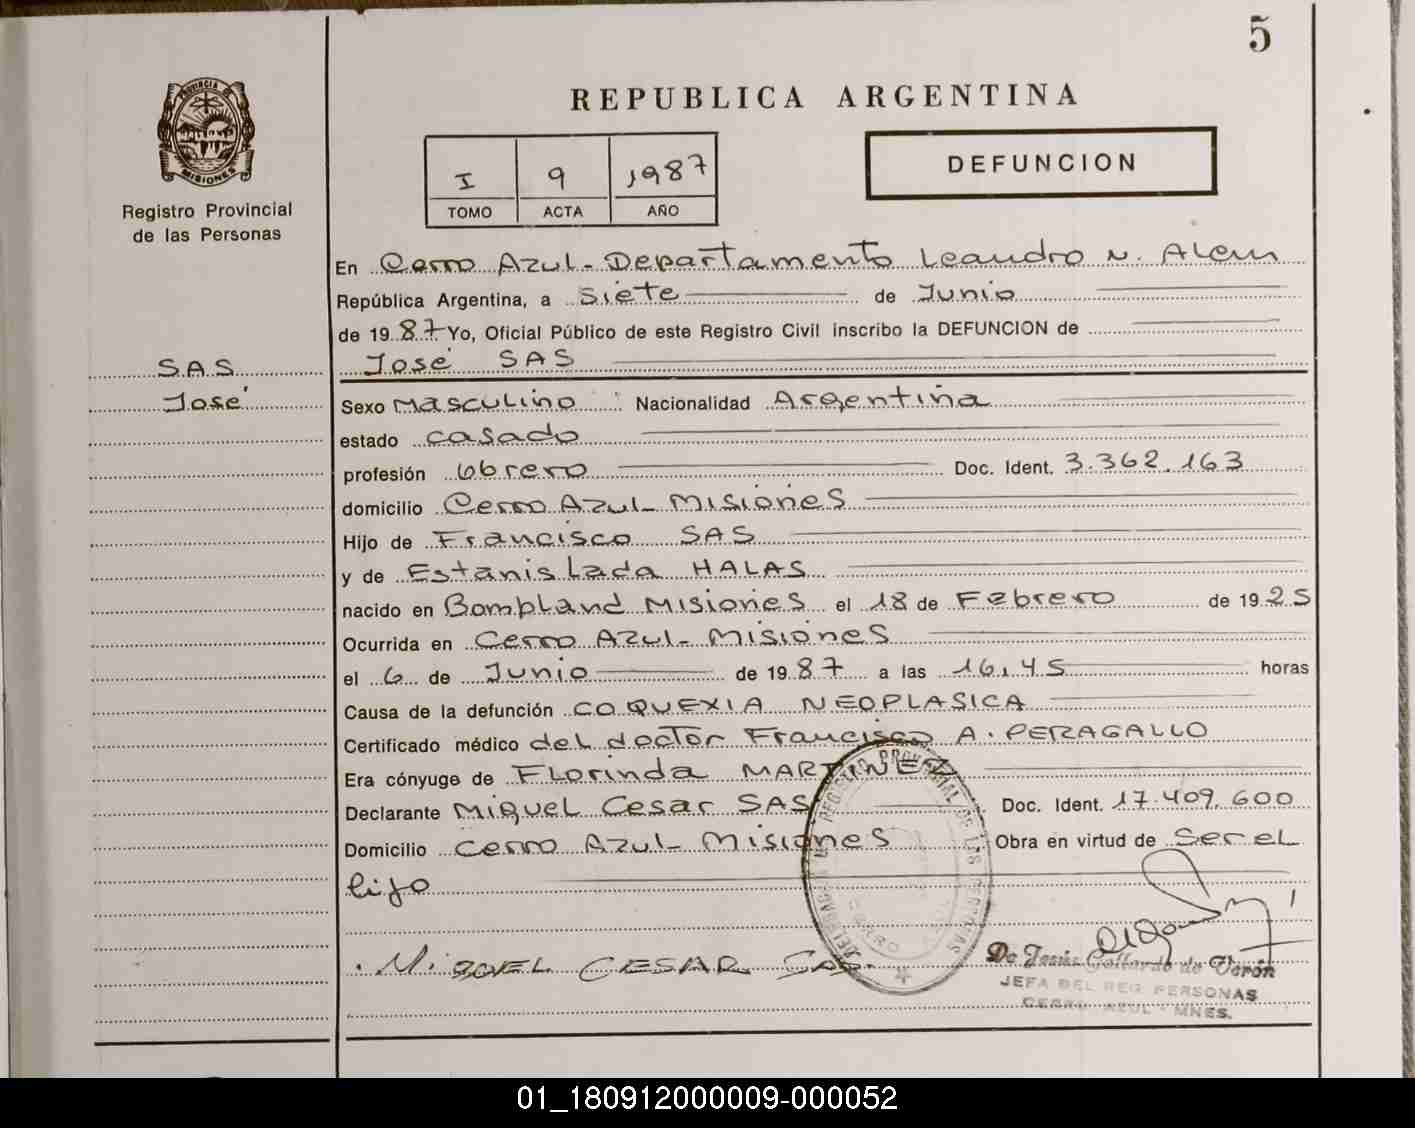 5
REPUBLICA ARGENTINA
PROVINCIA DE
MISIONES
Registro Provincial
de las Personas
I 9 1987
TOMO ACTA AÑO
DEFUNCION
En Cerro Azul - Departamento Leandro N. Alem
República Argentina, a siete de Junio
de 1987 Yo, Oficial Público de este Registro Civil inscribo la DEFUNCION de
José SAS
SAS
José
Sexo Masculino Nacionalidad Argentina
estado casado
profesión obrero Doc. Ident. 3.362.163
domicilio Cerro Azul - Misiones
Hijo de Francisco SAS
y de Estanislada HALAS
nacido en Bompland Misiones el 18 de Febrero de 1925
Ocurrida en Cerro Azul - Misiones
el 6 de Junio de 1987 a las 16,45 horas
Causa de la defunción COQUEXIA NEOPLASICA
Certificado médico del doctor Francisco A. PERAGALLO
Era cónyuge de Florinda MARTINEZ
Declarante Miguel Cesar SAS Doc. Ident. 17.409.600
Domicilio Cerro Azul - Misiones Obra en virtud de ser el
hijo
MIGUEL CESAR SAS.
REGISTRO PROVINCIAL DE LAS PERSONAS
CERRO AZUL
De Jesús Gallardo de Verón
JEFA DEL REG PERSONAS
CERRO AZUL - MNES.
01_180912000009-000052